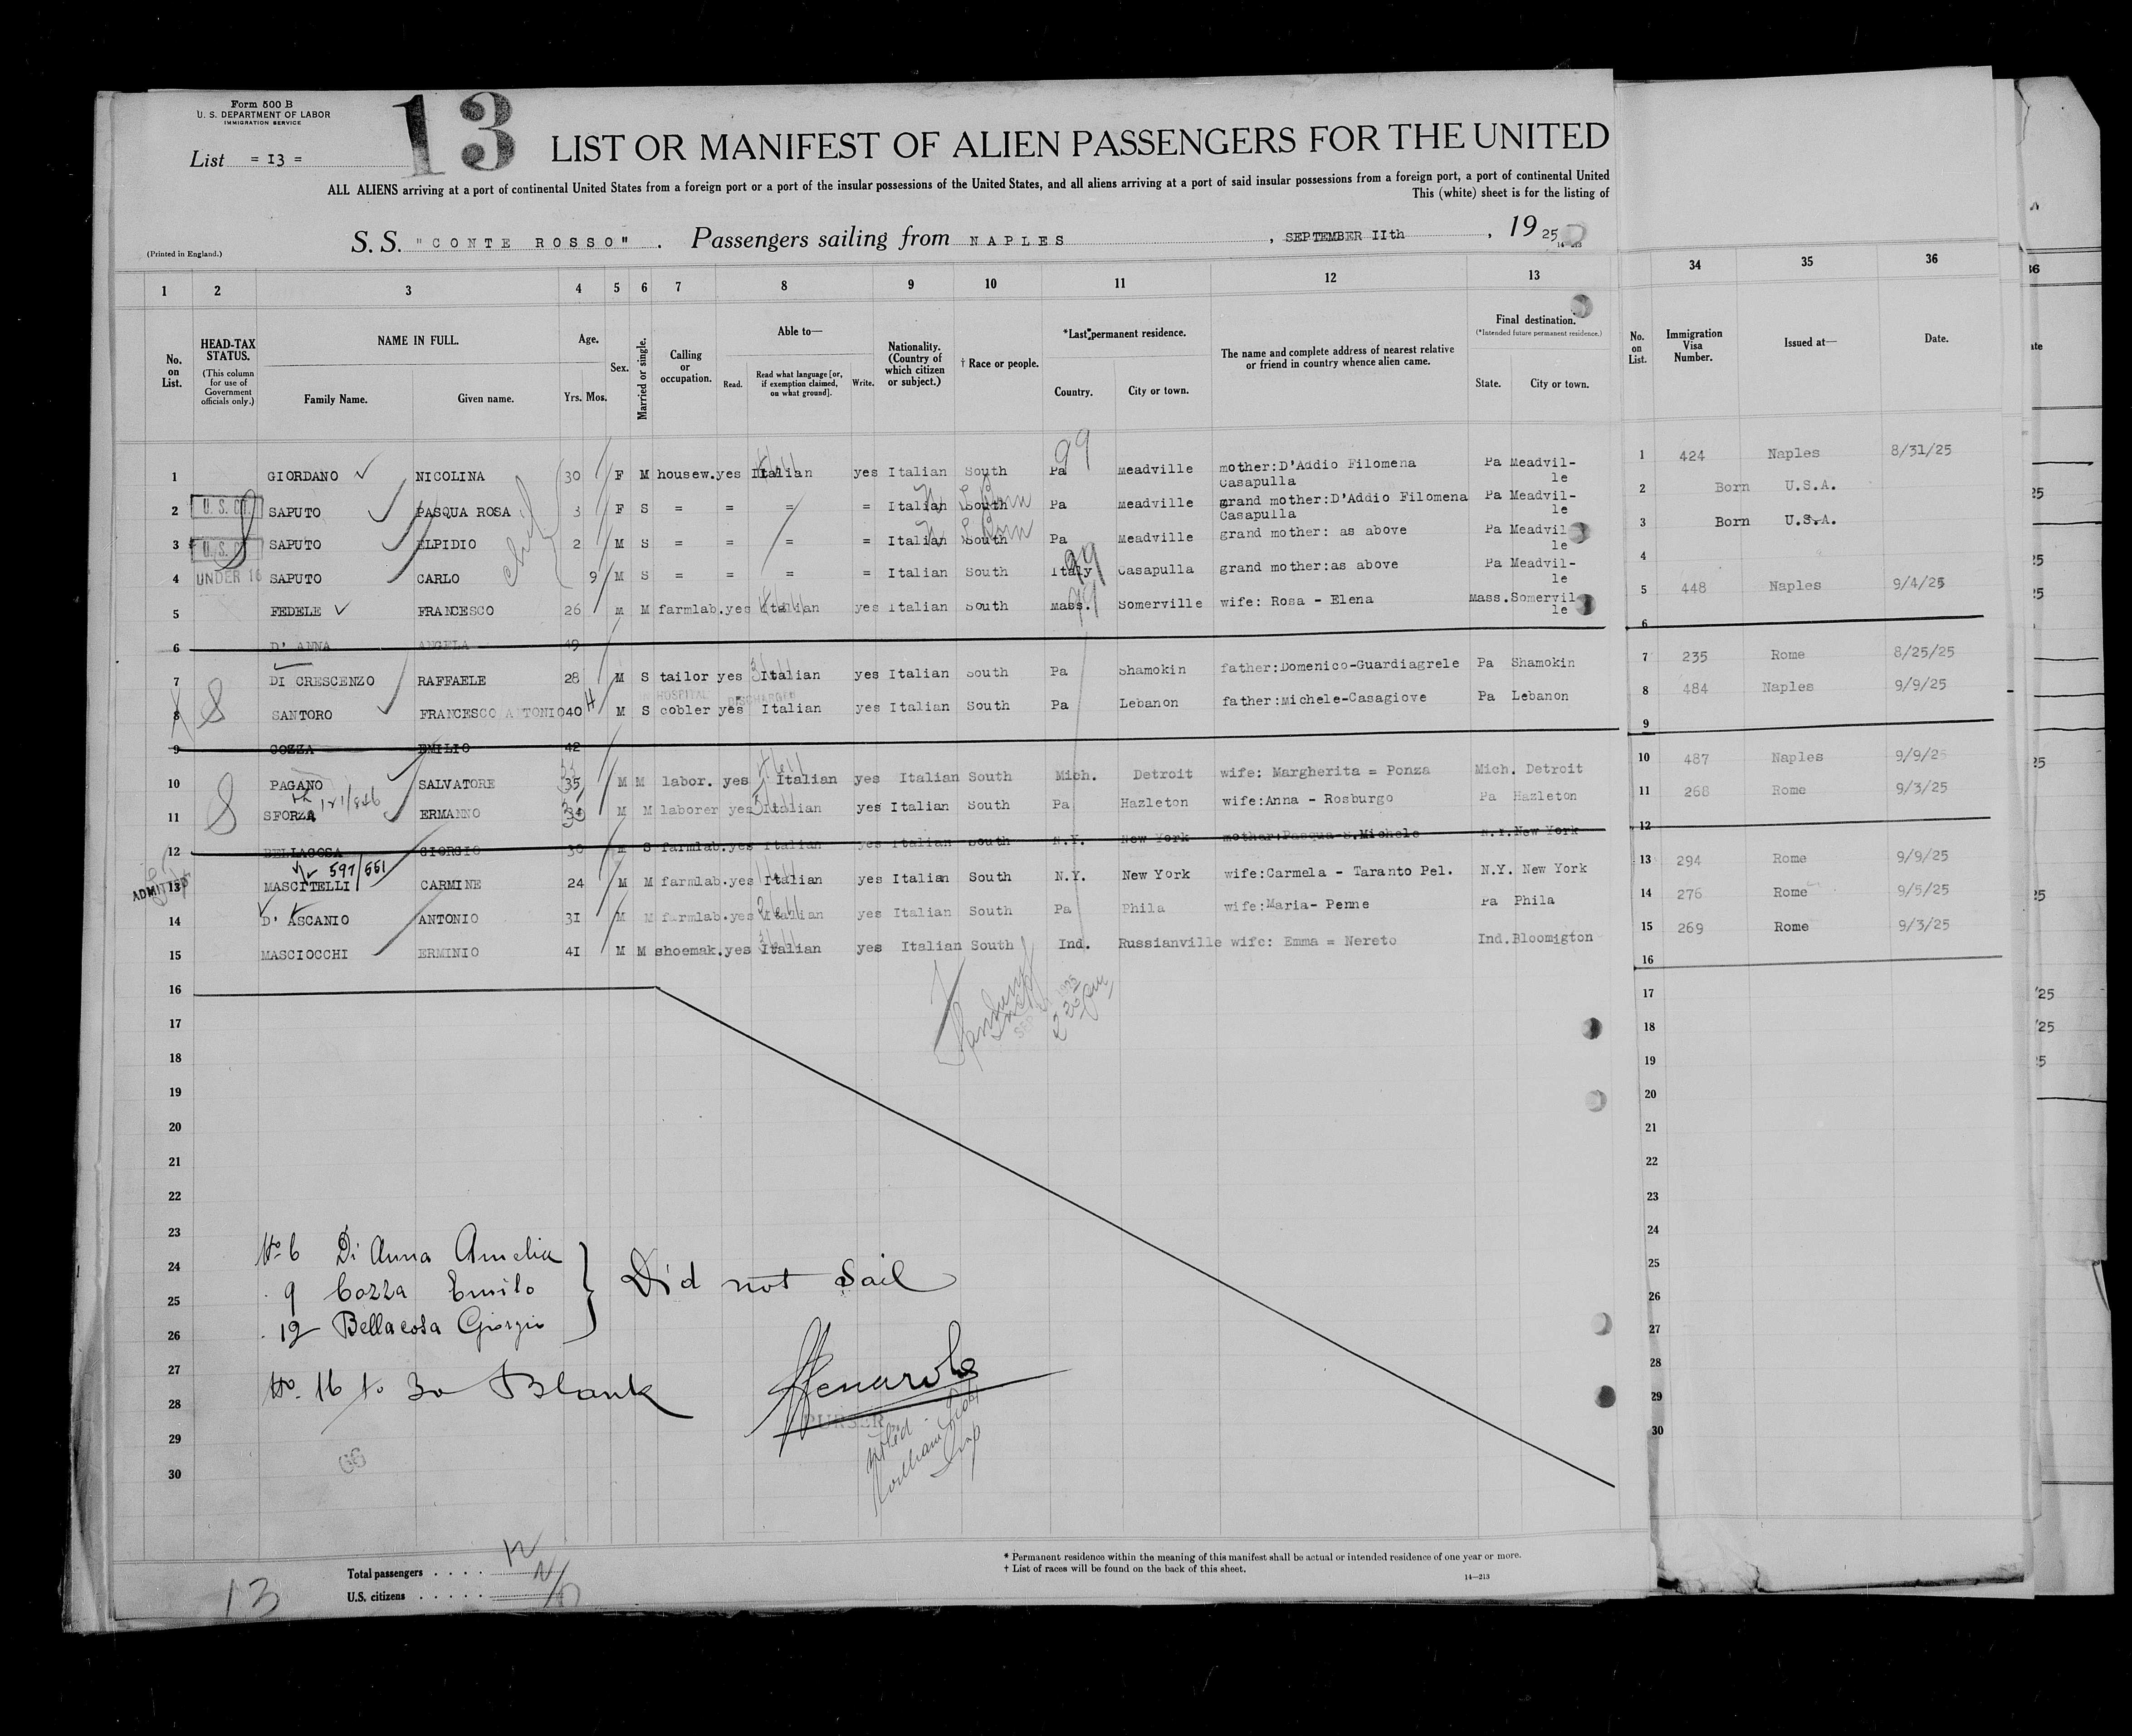 Form 500 B
U. S. DEPARTMENT OF LABOR
IMMIGRATION SERVICE
13
List = I3 =
LIST OR MANIFEST OF ALIEN PASSENGERS FOR THE UNITED
ALL ALIENS arriving at a port of continental United States from a foreign port or a port of the insular possessions of the United States, and all aliens arriving at a port of said insular possessions from a foreign port, a port of continental United
This (white) sheet is for the listing of
(Printed in England.)
S. S. "CONTE ROSSO". Passengers sailing from NAPLES, SEPTEMBER IIth, 19 25
14-213
1 2 3 4 5 6 7 8 9 10 11 12 13 34 35 36
No. on List.
HEAD-TAX STATUS.
(This column for use of Government officials only.)
NAME IN FULL.
Family Name. Given name.
Age.
Yrs. Mos.
Sex.
Married or single.
Calling or occupation.
Able to—
Read. Read what language [or, if exemption claimed, on what ground]. Write.
Nationality. (Country of which citizen or subject.)
† Race or people.
*Last permanent residence.
Country. City or town.
The name and complete address of nearest relative or friend in country whence alien came.
Final destination.
(*Intended future permanent residence.)
State. City or town.
No. on List.
Immigration Visa Number.
Issued at—
Date.
1 GIORDANO NICOLINA 30 F M housew. yes Italian yes Italian South Pa Meadville mother:D'Addio Filomena Casapulla Pa Meadvil-le 1 424 Naples 8/31/25
99
2 U. S. CIT. SAPUTO PASQUA ROSA 3 F S = = = = Italian South Pa Meadville grand mother:D'Addio Filomena Casapulla Pa Meadvil-le 2 Born U.S.A.
3 U. S. CIT. SAPUTO ELPIDIO 2 M S = = = = Italian South Pa Meadville grand mother: as above Pa Meadville 3 Born U.S.A.
4 UNDER 16 SAPUTO CARLO 9 M S = = = = Italian South Italy Casapulla grand mother:as above Pa Meadvil-le 4
99
5 FEDELE FRANCESCO 26 M M farmlab. yes Italian yes Italian South Mass. Somerville wife: Rosa - Elena Mass. Somerville 5 448 Naples 9/4/25
99
6 D' ANNA ANGELA 49 6
7 DI CRESCENZO RAFFAELE 28 M S tailor yes Italian yes Italian South Pa Shamokin father:Domenico-Guardiagrele Pa Shamokin 7 235 Rome 8/25/25
IN HOSPITAL DISCHARGED
8 SANTORO FRANCESCO ANTONIO 40 M S cobler yes Italian yes Italian South Pa Lebanon father:Michele-Casagiove Pa Lebanon 8 484 Naples 9/9/25
9 COZZA EMILIO 42 9
10 PAGANO SALVATORE 35 M M labor. yes Italian yes Italian South Mich. Detroit wife: Margherita = Ponza Mich. Detroit 10 487 Naples 9/9/25
11 SFORZA ERMANNO M M laborer yes Italian yes Italian South Pa Hazleton wife:Anna - Rosburgo Pa Hazleton 11 268 Rome 9/3/25
12 BELLACOSA GIORGIO 30 M S farmlab. yes Italian yes Italian South N.Y. New York mother:Pasqua-S.Michele N.Y. New York 12
597/661
ADMITTED
13 MASCITELLI CARMINE 24 M M farmlab. yes Italian yes Italian South N.Y. New York wife:Carmela - Taranto Pel. N.Y. New York 13 294 Rome 9/9/25
14 D' ASCANIO ANTONIO 3I M M farmlab. yes Italian yes Italian South Pa Phila wife:Maria- Penne Pa Phila 14 276 Rome 9/5/25
15 MASCIOCCHI ERMINIO 4I M M shoemak. yes Italian yes Italian South Ind. Russianville wife: Emma = Nereto Ind. Bloomigton 15 269 Rome 9/3/25
16 16
17 17
18 18
19 19
20 20
21 21
22 22
23 23
24 24
25 25
26 26
27 27
28 28
29 29
30 30
No 6 Di Anna Amelia
9 Cozza Emilo
12 Bellacosa Giorgio
Did not Sail
No. 16 to 30 Blank
PURSER
Total passengers
U.S. citizens
13
* Permanent residence within the meaning of this manifest shall be actual or intended residence of one year or more.
† List of races will be found on the back of this sheet.
14—213